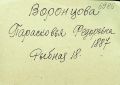 Воронцова
Парасковья Федоровна
1887
Рыбная 18.